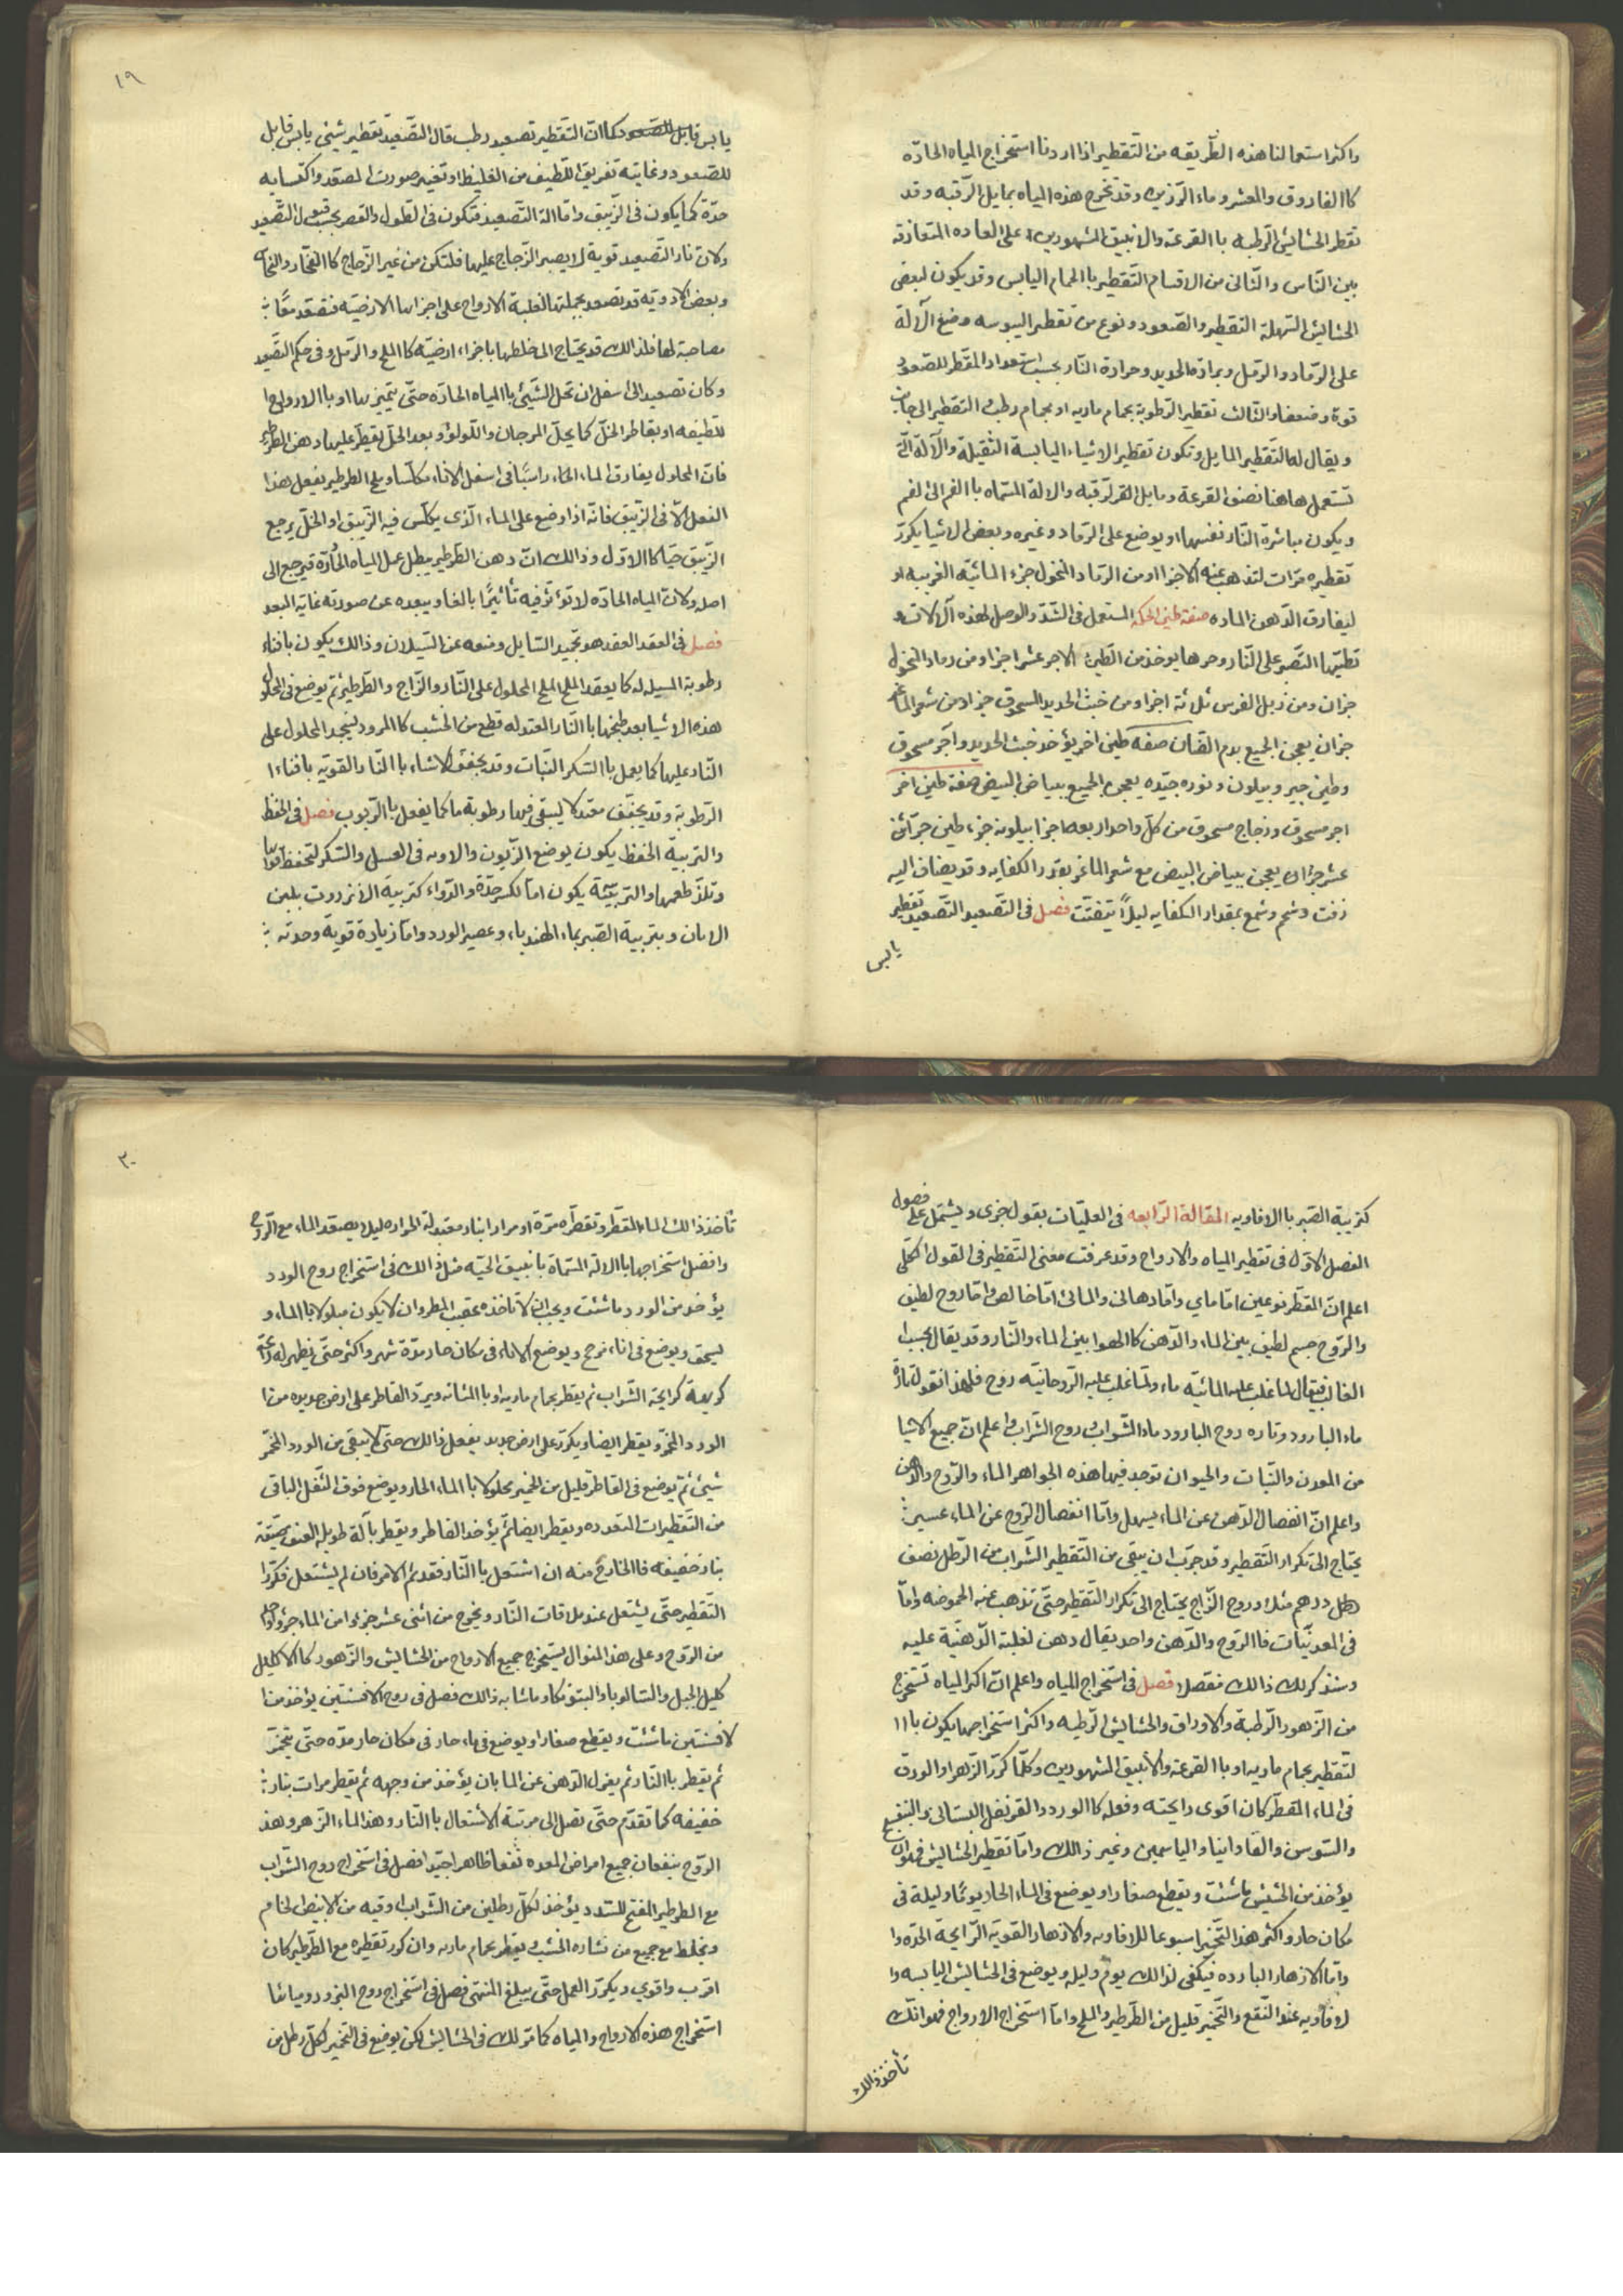 واكثر استعمالنا هذه الطّريقه من التقطير اذا اردنا استخراج المياه الحادّه
كاالفاروق والمعشر وماء الرّزين وقد تخرج هذه المياه بمايل الرّقبه وقد
تقطر الحشايش الرّطبه باالقرعة والانبيق المشهورين على العاده المتعارفه
بين النّاس والثّانى من الاقسام التّقطير باالحمام اليابس وقد يكون لبعض
الحشايش السّهلة التقطير والصّعود ونوع من تقطير اليبوسه وضع الآلة
على الرّماد والرّمل وبرادة الحديد وحرارة النّار بحسب استعداد المقطر للصّعود
قوة وضعفا والثّالث تقطير الرّطوبة بحمام ماريه او بحمام رطب التقطير الى جانب
ويقال له التّقطير المايل وتكون تقطير الاشياء اليابسة الثّقيلة والآلة الّتى
تستعمل هاهنا نصف القرعة ومايل القرلرّقبه والالة المسمّاه باالفم الى الفم
ويكون مباشرة النّار نفسها او يوضع على الرّماد وغيره وبعض الاشيا يكرّر
تقطيره مرّات لتذهب عنه الاجزا او من الرّماد المنخول جزء المائيّة الغريبه او
ليفارق الدّهن الماده صفة طين الحكمة المستعمل فى الشدّ والوصل لهذه الآلات و
تطيينها التّصبر على النّار وحرها يوخذ من الطّين الاحمر عشر اجزا ومن رماد المنخول
جزان ومن زبل الفرس ثلاثة اجزا ومن خبث الحديد المسحوق جزاء ومن شعر الماعز
جزان يعجن الجميع بدم القبّان صفة طين اخر يؤخذ خبث الحديد واجر مسحوق
وطين جبر وبيلون ونوره جيّده يعجن الجميع ببياض البيض صفة طين اخر
اجر مسحوق وزجاج مسحوق من كلّ واحد اربعه اجزا بيلونه جزء طين حرّ اثنى
عشر جزاء يعجن ببياض البيض مع شعر الماعز بقدر الكفايه وقد يضاف اليه
زفت وشحم وشمع بمقدار الكفايه ليلاً يتفتّت فصل فى التّصعيد التّصعيد تقطير
يابس
١٩
يابس قابل للصّعود كماانّ التّقطير تصعيد رطب قال التّصعيد تقطير شيئ يابس قابل
للصّعود وغايته تفريق اللّطيف من الغليظ او تغيير صورة المصعّد واكتسابه
حدّة كما يكون فى الزّيبق وامّاالة التّصعيد فتكون فى الطّول والقصر بحسب قبول التّصعيد
وكان نار التّصعيد قوية لا يصبر الزّجاج عليها فلتكن من غير الزّجاج كاالفخّار والنحاس
وبعض الادوية قد تصعد بجملتها لغلبة الارواح على اجزاىها الارضيّه فتصعد معًا
مصاحبة لها فلذالك قد يحتاج الى خلطها باجزاء ارضيّه كاالملح والرّمل وفى حكم التّصعيد
وكان تصعيد الى اسفل ان تحل الشّيئ باالمياه الحادّه حتّى يتميز بها او باالارواح ا
للطيفه او بقاطر الخلّ كما يحلّ المرجان واللّولؤ وبعد الحلّ يقطّر عليها دهن الطرطير
فانّ المحلول يفارق الماء الحاد راسبًا فى اسفل الاناء مكلّسا وملح الطرطير يفعل هذا
الفعل الاّ فى الزيبق فانّه اذا وضع على الماء الّذى يكلّس فيه الزّيبق او الخلّ يرجع
الزّيبق حيّا كاالاوّل وذالك انّ دهن الطّرطير يبطل عمل المياه الحادّه فيرجع الى
اصله وكان المياه الحادّه لا تؤثر فيه تأثيرًا بالغا ويبعده عن صورته غاية البعد
فصل فى العقد العقد هو تجميد السّايل ومنعه عن السّيلان وذالك يكون بافناء
رطوبة المسيله له كما يعقد الملح الملح المحلول على النّار والزّاج والطّرطير ثم يوضع فى المحلول
هذه الاشيا بعد طبخها باالنّار المعتدله قطع من الخشب كاالمرود ليتجمد المحلول على
النّار عليها كما يعمل باالسّكر النّبات وقد يجفف الاشياء باالنّار القويّه بافناء ا
لرّطوبة وقد يجفّف معتدلا ليبقى فيها رطوبة ما كما يفعل باالرّبوب فصل فى الحفظ
والتربية الحفظ يكون بوضع الزّيتون والادوىه فى العسل والسّكر لتحفظ قواىها
وتلذّ طعمها والتربيّة يكون امّا لكسر حدّة والدّواء كتربية الانزروت بلبن
الاتان وبتربية الصّبر بماء الهندباء وعصير الورد وامّا زيادة قوية وحدته
كتربية الصّبر باالافاويه المقالة الرّابعه فى العمليّات بقول جزى ويشتمل على فصول
الفصل الاوّل فى تقطير المياه والارواح وقد عرفت معنى التّقطير فى القول الكلّى
اعلم انّ المقطّر نوعين امّا ماى وامّا دهانى والمائ امّا خالص وامّا روح لطيف
والرّوح جسم لطيف بين الماء والدّهن كاالهوا بين الماء والنّار وقد يقال بحسب
الغالب فيقال لما غلب عليه المائيّه ماء ولما غلب عليه الرّوحانيّه روح فلهذا نقول تارة
ماء البارود وتاره روح البارود ماء الشّراب وروح الشّراب واعلم انّ جميع الاشيا
من المعدن والنّبات والحيوان توجد فيها هذه الجواهر الماء والرّوح والدّهن
واعلم انّ انفصال الدّهن عن الماء يسهل وامّا انفصال الرّوح عن الماء عسير
يحتاج الى تكرار التّقطير وقد جرّب ان يبقى من التّقطير الشّراب من الرّطل نصف
رطل درهم مثله وروح الزّاج يحتاج الى تكرار التّقطير حتّى تذهب عنه الحموضه وامّا
فى المعدنيّات فاالرّوح والدّهن واحد يقال دهن لغلبة الدّهنيّة عليه
وسنذكر لك ذالك مفصلا فصل فى استخراج المياه واعلم انّ اكثر المياه تستخرج
من الزّهور الرّطبة والاوراق والحشايش الرّطبه واكثر استخراجها يكون باا
لتقطير بحمام ماريه او باالقرعة والانبيق المشهورين وكلّما كرّر الزّهر او الورق
فى الماء المقطّر كان اقوى رايحته وفعله كاالورد والقرنفل البستانى والبنفسج
والسّوسن والفاوانيا والياسمين وغير ذالك وامّا تقطير الحشايش فهو ان
يؤخذ من الحشيش ما شئت ويقطع صغارا ويوضع فى الماء الحار يومًا وليلة فى
مكان حار واكثر هذا التّخمير اسبوعا للافاويه والازهار القويّه الرّايحة الحدّه وا
وامّا الازهار البارده فيكفى لذالك يوم وليله ويوضع فى الحشايش اليابسه وا
لافاويه عند النّقع والتّخمير قليل من الطّرطير والملح وامّا استخراج الارواح فهو انّك
تأخذ ذالك
٢٠
تأخذ ذالك الماء المقطّر وتقطّره مرّة او مرارا بنار معتدلة الحراره ليلا يصعد الماء مع الرّوح
وافضل استخراجها باالالة المسمّاة بانبيق الحيّه مثل ذالك فى استخراج روح الورد
يؤخذ من الورد ما شئت ويجب ان لا تأخذه عقيب المطر وان لا يكون مبلولا باالماء و
يسحق ويوضع فى اناء مزجج ويوضع الاناء فى مكان حار مدّة شهر واكثر حتّى يظهر له رائحة
كريهة كرايحة الشّراب ثم يقطر بحمام ماريه او باالمثانه ويردّ القاطر على ارض جديده من ا
لورد المخمّر ويقطر ايضا ويكرّر على ارض جديده يفعل ذالك حتّى لا يبقى من الورد المخمّر
شيئ ثمّ يوضع فى القاطر قليل من الخمير محلولا باالماء الحار ويوضع فوق الثّفل الباقى
من التّقطيرات المتعدده ويقطر ايضا ثمّ يؤخذ القاطر ويقطر بآلة طويله العنق ضيّقة
بنار خفيفه فاالخارج منه ان اشتعل باالنّار فقد تمّ الامر فان لم يشتعل فكرّر ا
لتّقطير حتّى يشتعل عند ملاقات النّار ويخرج من اثنى عشر جزوا من الماء جزو واحد
من الرّوح وعلى هذا المنوال يستخرج جميع الارواح من الحشايش والزّهور كاالاكليل
كليل الجبل والسّالوىا والبتونكا وما شابه ذالك فصل فى روح الافسنتين يؤخذ من ا
لافسنتين ما شئت ويقطع صغارا ويوضع فى ماء حار فى مكان حار مدّه حتّى يتخمّر
ثم يقطر باالنّار ثم يعزل الدّهن عن الما بان يؤخذ من وجهه ثم يقطر مرات بنار
خفيفه كما تقدّم حتّى تصل الى مرتبة الاشتعال باالنّار وهذا الماء الزّهر وهذ
الرّوح ينفعان جميع امراض المعده نفعا ظاهرا جيّد افصل فى استخراج روح الشّراب
مع الطرطير المفتح للسّدد يؤخذ لكلّ رطلين من الشّراب اوقيه من الابيض الخام
ويخلط مع جميع من نشاره الخشب ويقطر بحمام ماريه وان كرر تقطيره مع الطّرطير كان
اقرب واقوي ويكرّر العمل حتّى يبلغ المنتهى فصل فى استخراج روح البزور ومياهها
استخراج هذه الارواح والمياه كما مرّ لك فى الحشايش لكن يوضع فى التّخمير لكلّ رطل من